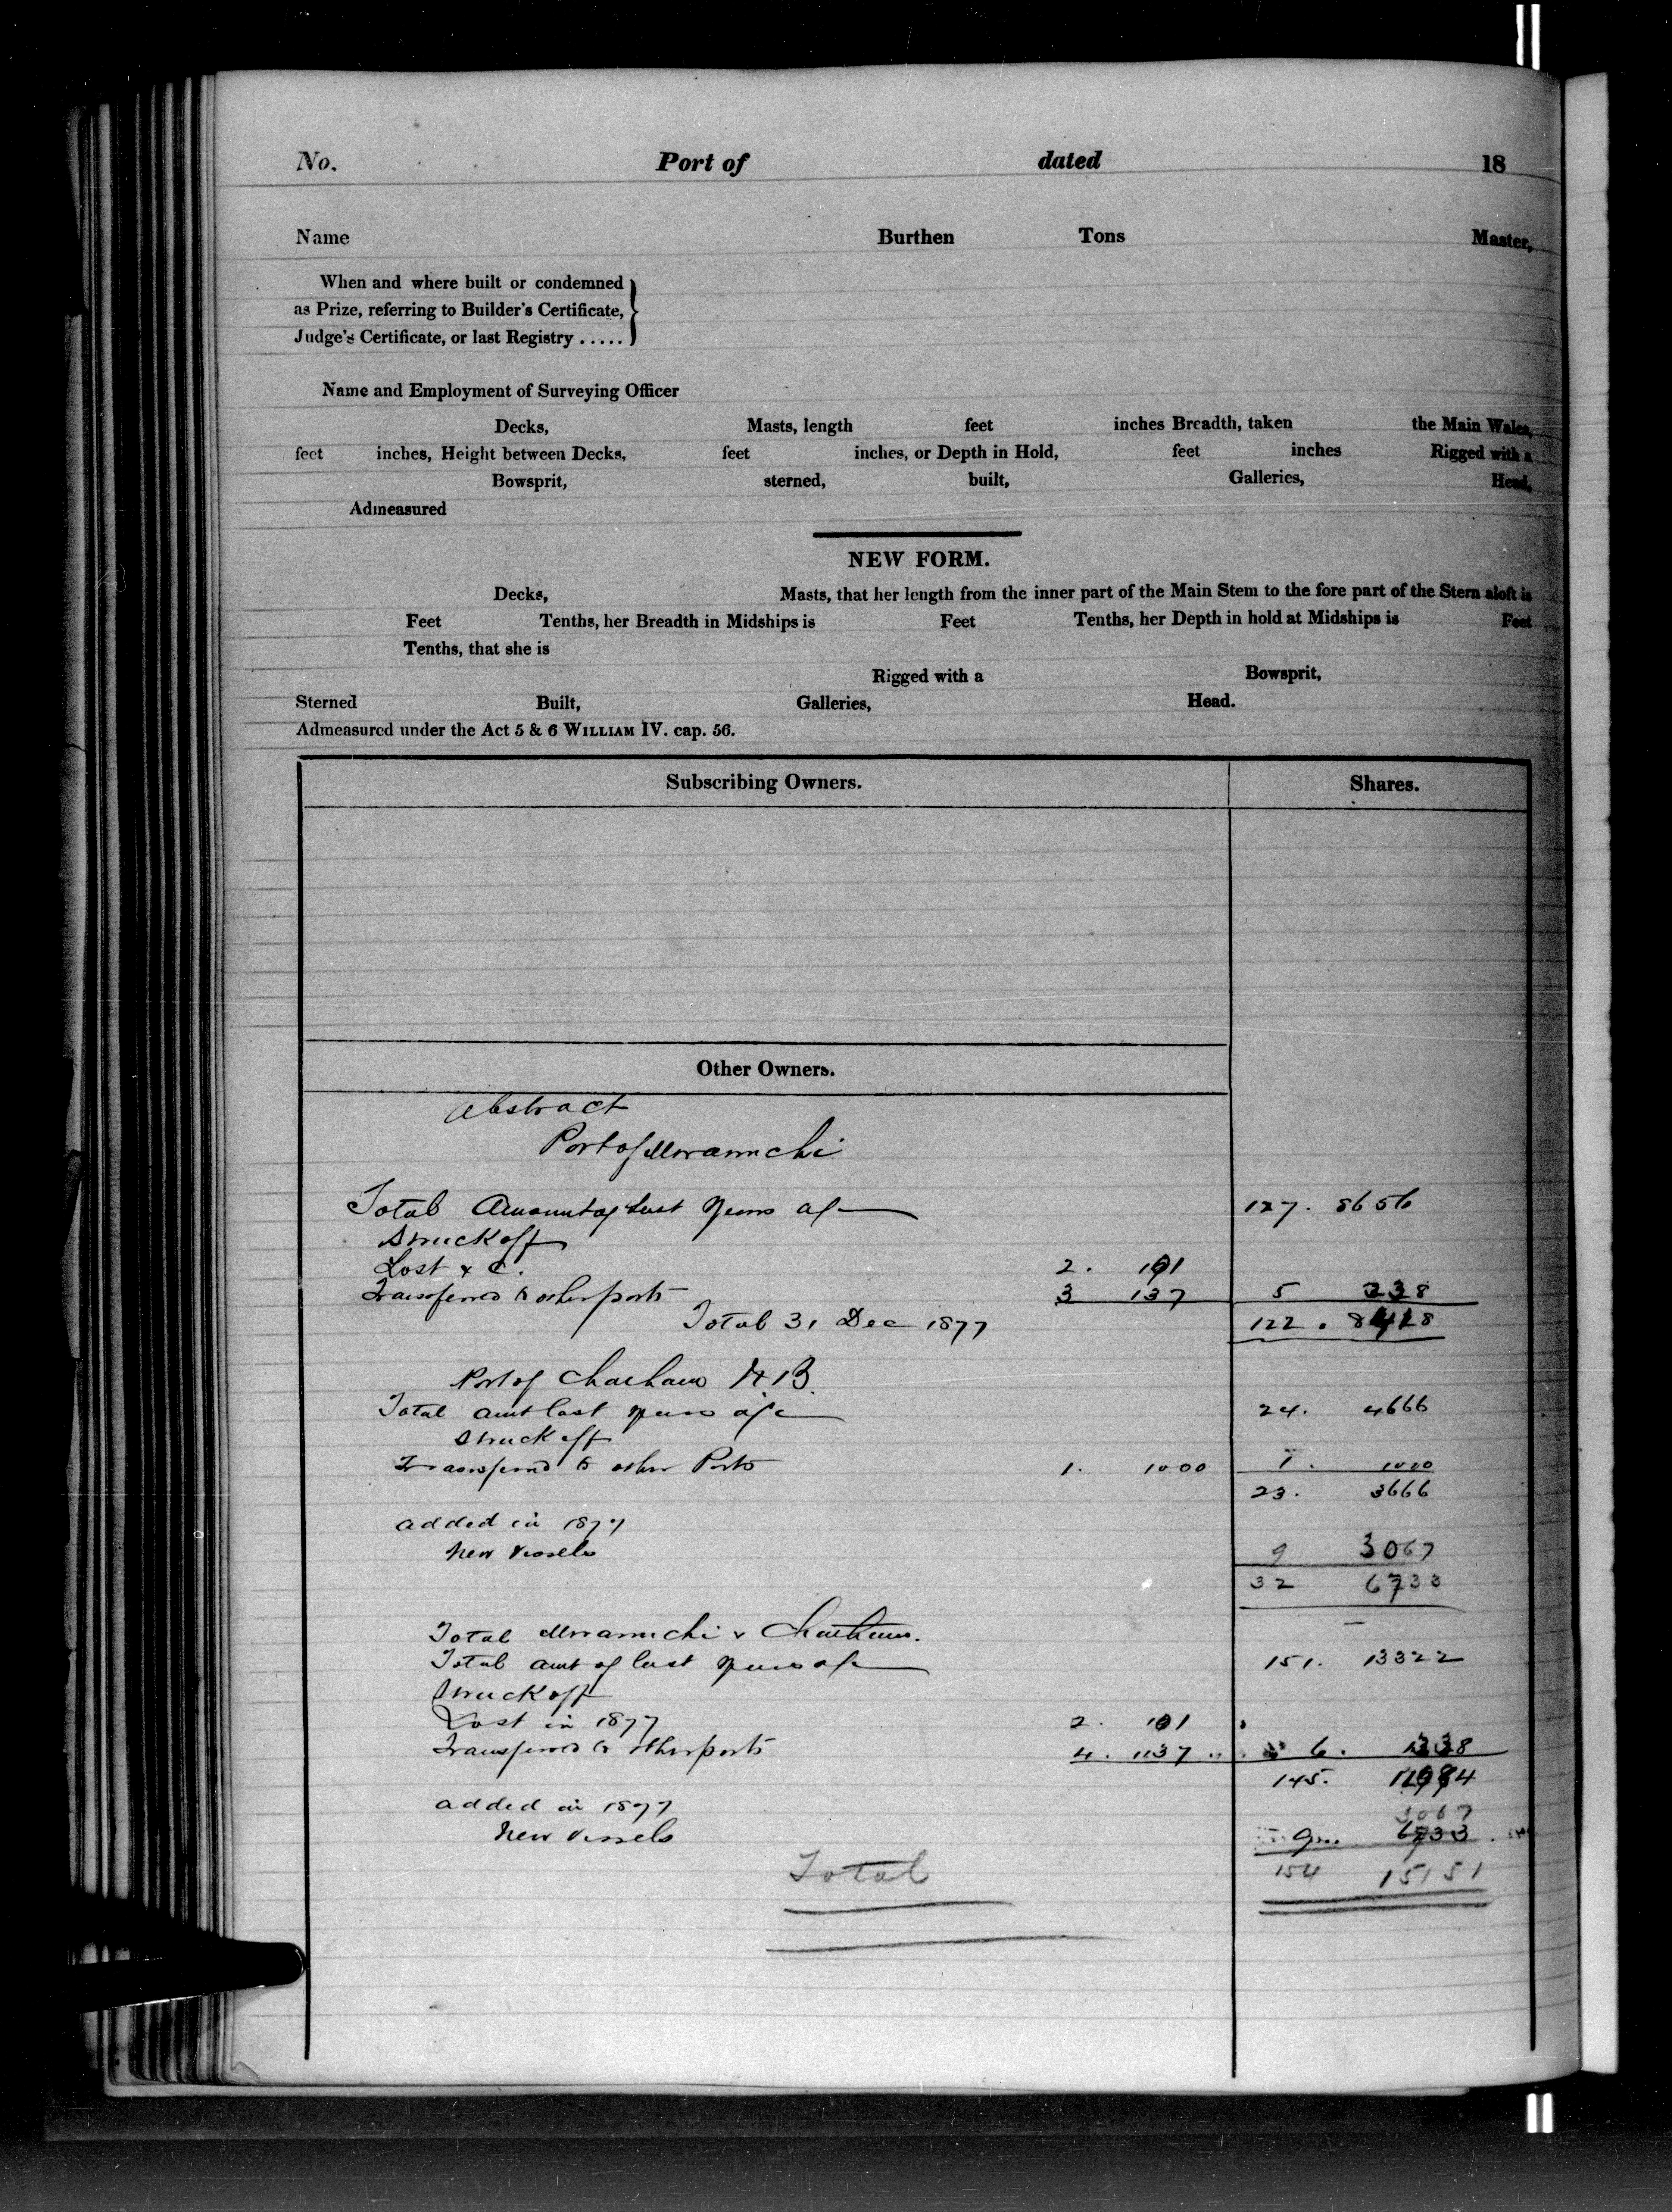 No. Port of dated 18
Name Burthen Tons Master,
When and where built or condemned
as Prize, referring to Builder's Certificate,
Judge's Certificate, or last Registry .....
Name and Employment of Surveying Officer
Decks, Masts, length feet inches Breadth, taken the Main Wales,
feet inches, Height between Decks, feet inches, or Depth in Hold, feet inches Rigged with a
Bowsprit, sterned, built, Galleries, Head,
Admeasured
NEW FORM.
Decks, Masts, that her length from the inner part of the Main Stem to the fore part of the Stern aloft is
Feet Tenths, her Breadth in Midships is Feet Tenths, her Depth in hold at Midships is Feet
Tenths, that she is
Rigged with a Bowsprit,
Sterned Built, Galleries, Head.
Admeasured under the Act 5 & 6 WILLIAM IV. cap. 56.
Subscribing Owners. Shares.
Other Owners.
Abstract
Port of Miramichi
Total Amount of last years a/c 127. 8656
Struck off
Lost & C. 2. 101
Transferred to other ports 3 137 5 238
Total 31 Dec 1877 122. 8418
Port of Chatham N.B.
Total amt last years a/c 24. 4666
Struck off
Transferred to other Ports 1. 1000 1. 1000
23. 3666
added in 1877
New Vessels 9 3067
32 6733
Total Miramichi & Chatham.
Total amt of last years a/c 151. 13322
Struck off
Lost in 1877 2. 101
Transferred to other ports 4. 1137 6. 1238
145. 12084
added in 1877 3067
New Vessels 9 6733
Total 154 15151